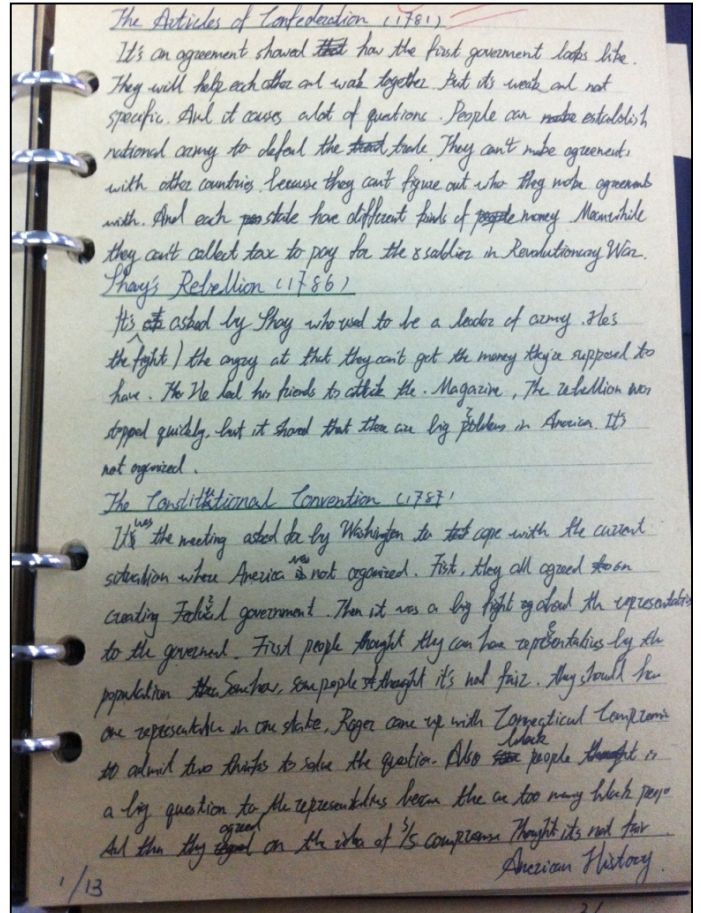 The Articles of Confederation (1781)
It's an agreement showed how the first goverment looks like.
They will help each other and work together. But it's weak and not
specific. And it causes a lot of questions. People can establish
national army to defend the trade. They can't make agreements
with other countries, because they can't figure out who they make agreements
with. And each state have different kinds of money. Meanwhile
they can't collect tax to pay for the soldier in Revolutionary War.
Shay's Rebellion (1786)
It's asked by Shay who used to be a leader of army. He's
the fight / the angry at that they can't get the money they're supposed to
have. He lead his friends to the Magazine, The rebellion was
stopped quickly, but it showed that there are big problems in America. It's
not organized.
The Constititional Convention (1787)
It was the meeting asked for by Washington to cope with the current
situation where America was not organized. Fist, they all agreed on
creating Federal government. Then it was a big fight about the representatives
to the goverment. First people thought they can have representatives by the
population Somehow, some people thought it's not fair. they should have
one representative in one state, Roger came up with Connecticut Compromise
to admit two to solve the question. Also black people is
a big question to the representatives because the are too many black people
And then they agreed on the idea of 3/5 compromise Thought it's not fair
American History.
1/13